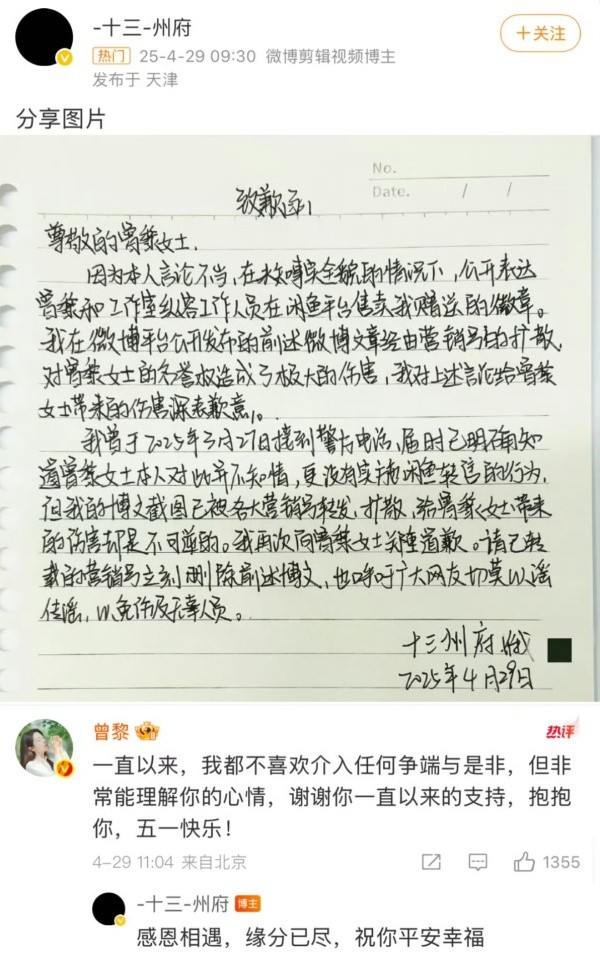 -十三-州府
+关注
热门 25-4-29 09:30 微博剪辑视频博主
发布于 天津
分享图片
No.
Date. / /
致歉函
尊敬的曾黎女士。
因为本人言论不当，在未知事实全貌的情况下，公开表达
曾黎和工作室纵容工作人员在闲鱼平台售卖我赠送的徽章。
我在微博平台公开发布的前述微博文章经由营销号的扩散，
对曾黎女士的名誉权造成了极大的伤害，我对上述言论给曾黎
女士带来的伤害深表歉意。
我曾于2025年3月27日接到警方电话，届时已明确知
道曾黎女士本人对此并不知情，更没有实施闲鱼转售的行为，
但我的博文截图已被各大营销号转发、扩散，给曾黎女士带来
的伤害却是不可逆的。我再次向曾黎女士郑重道歉。请已转
载的营销号立刻删除前述博文，也呼吁广大网友切莫以谣
传谣，以免伤及无辜人员。
十三州府
2025年4月29日
曾黎
热评
一直以来，我都不喜欢介入任何争端与是非，但非
常能理解你的心情，谢谢你一直以来的支持，抱抱
你，五一快乐！
4-29 11:04 来自北京 1355
-十三-州府 博主
感恩相遇，缘分已尽，祝你平安幸福